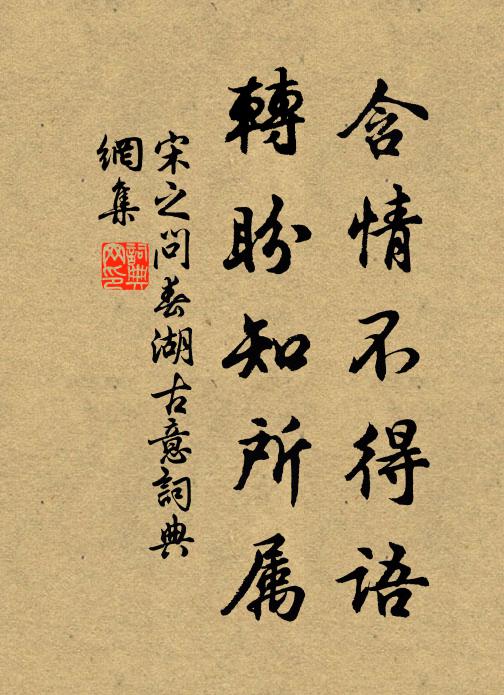 含情不得语
轉盼知所属
宋之问春湖古意詞典
網集
詞典网印